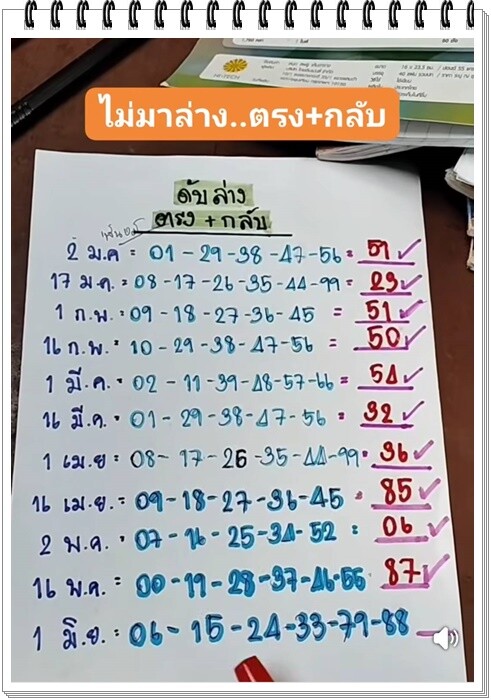 HI-TECH
ไม่มาล่าง..ตรง+กลับ
ดับ ล่าง
ตรง + กลับ
2 ม.ค = 01 - 29 - 38 - 47 - 56 = 51 ✓
17 ม.ค. = 08 - 17 - 26 - 35 - 44 - 99 = 23 ✓
1 ก.พ. = 09 - 18 - 27 - 36 - 45 = 51 ✓
16 ก.พ. = 10 - 29 - 38 - 47 - 56 = 50 ✓
1 มี.ค. = 02 - 11 - 39 - 48 - 57 - 66 = 54 ✓
16 มี.ค. = 01 - 29 - 38 - 47 - 56 = 32 ✓
1 เม.ย = 08 - 17 - 26 - 35 - 44 - 99 = 36 ✓
16 เม.ย. = 09 - 18 - 27 - 36 - 45 = 85 ✓
2 พ.ค. = 07 - 16 - 25 - 34 - 52 = 06 ✓
16 พ.ค. = 00 - 19 - 28 - 37 - 46 - 55 87 ✓
1 มิ.ย. = 06 - 15 - 24 - 33 - 79 - 88